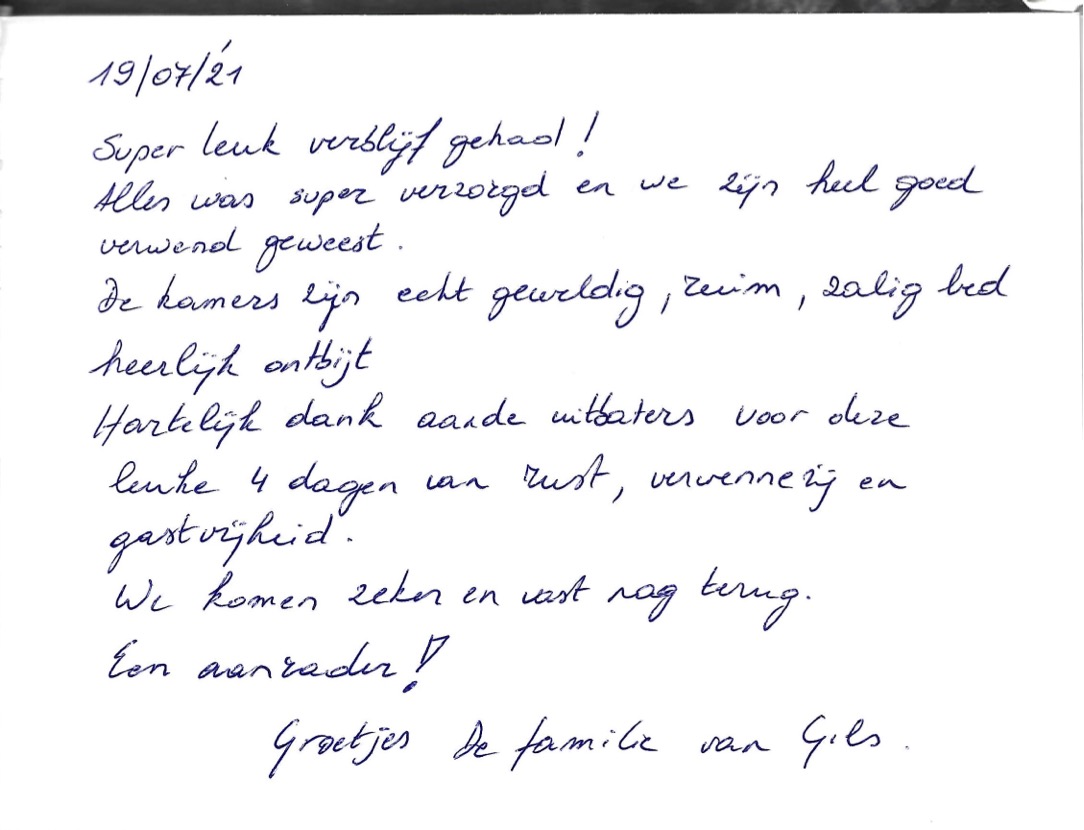 19/07/'21
Super leuk verblijf gehad!
Alles was super verzorgd en we zijn heel goed
verwend geweest.
De kamers zijn echt geweldig, ruim, zalig bed
heerlijk ontbijt
Hartelijk dank aande uitbaters voor deze
leuke 4 dagen van rust, verwennerij en
gastvrijheid.
We komen zeker en vast nog terug.
Een aanrader!
Groetjes De familie van Gils.